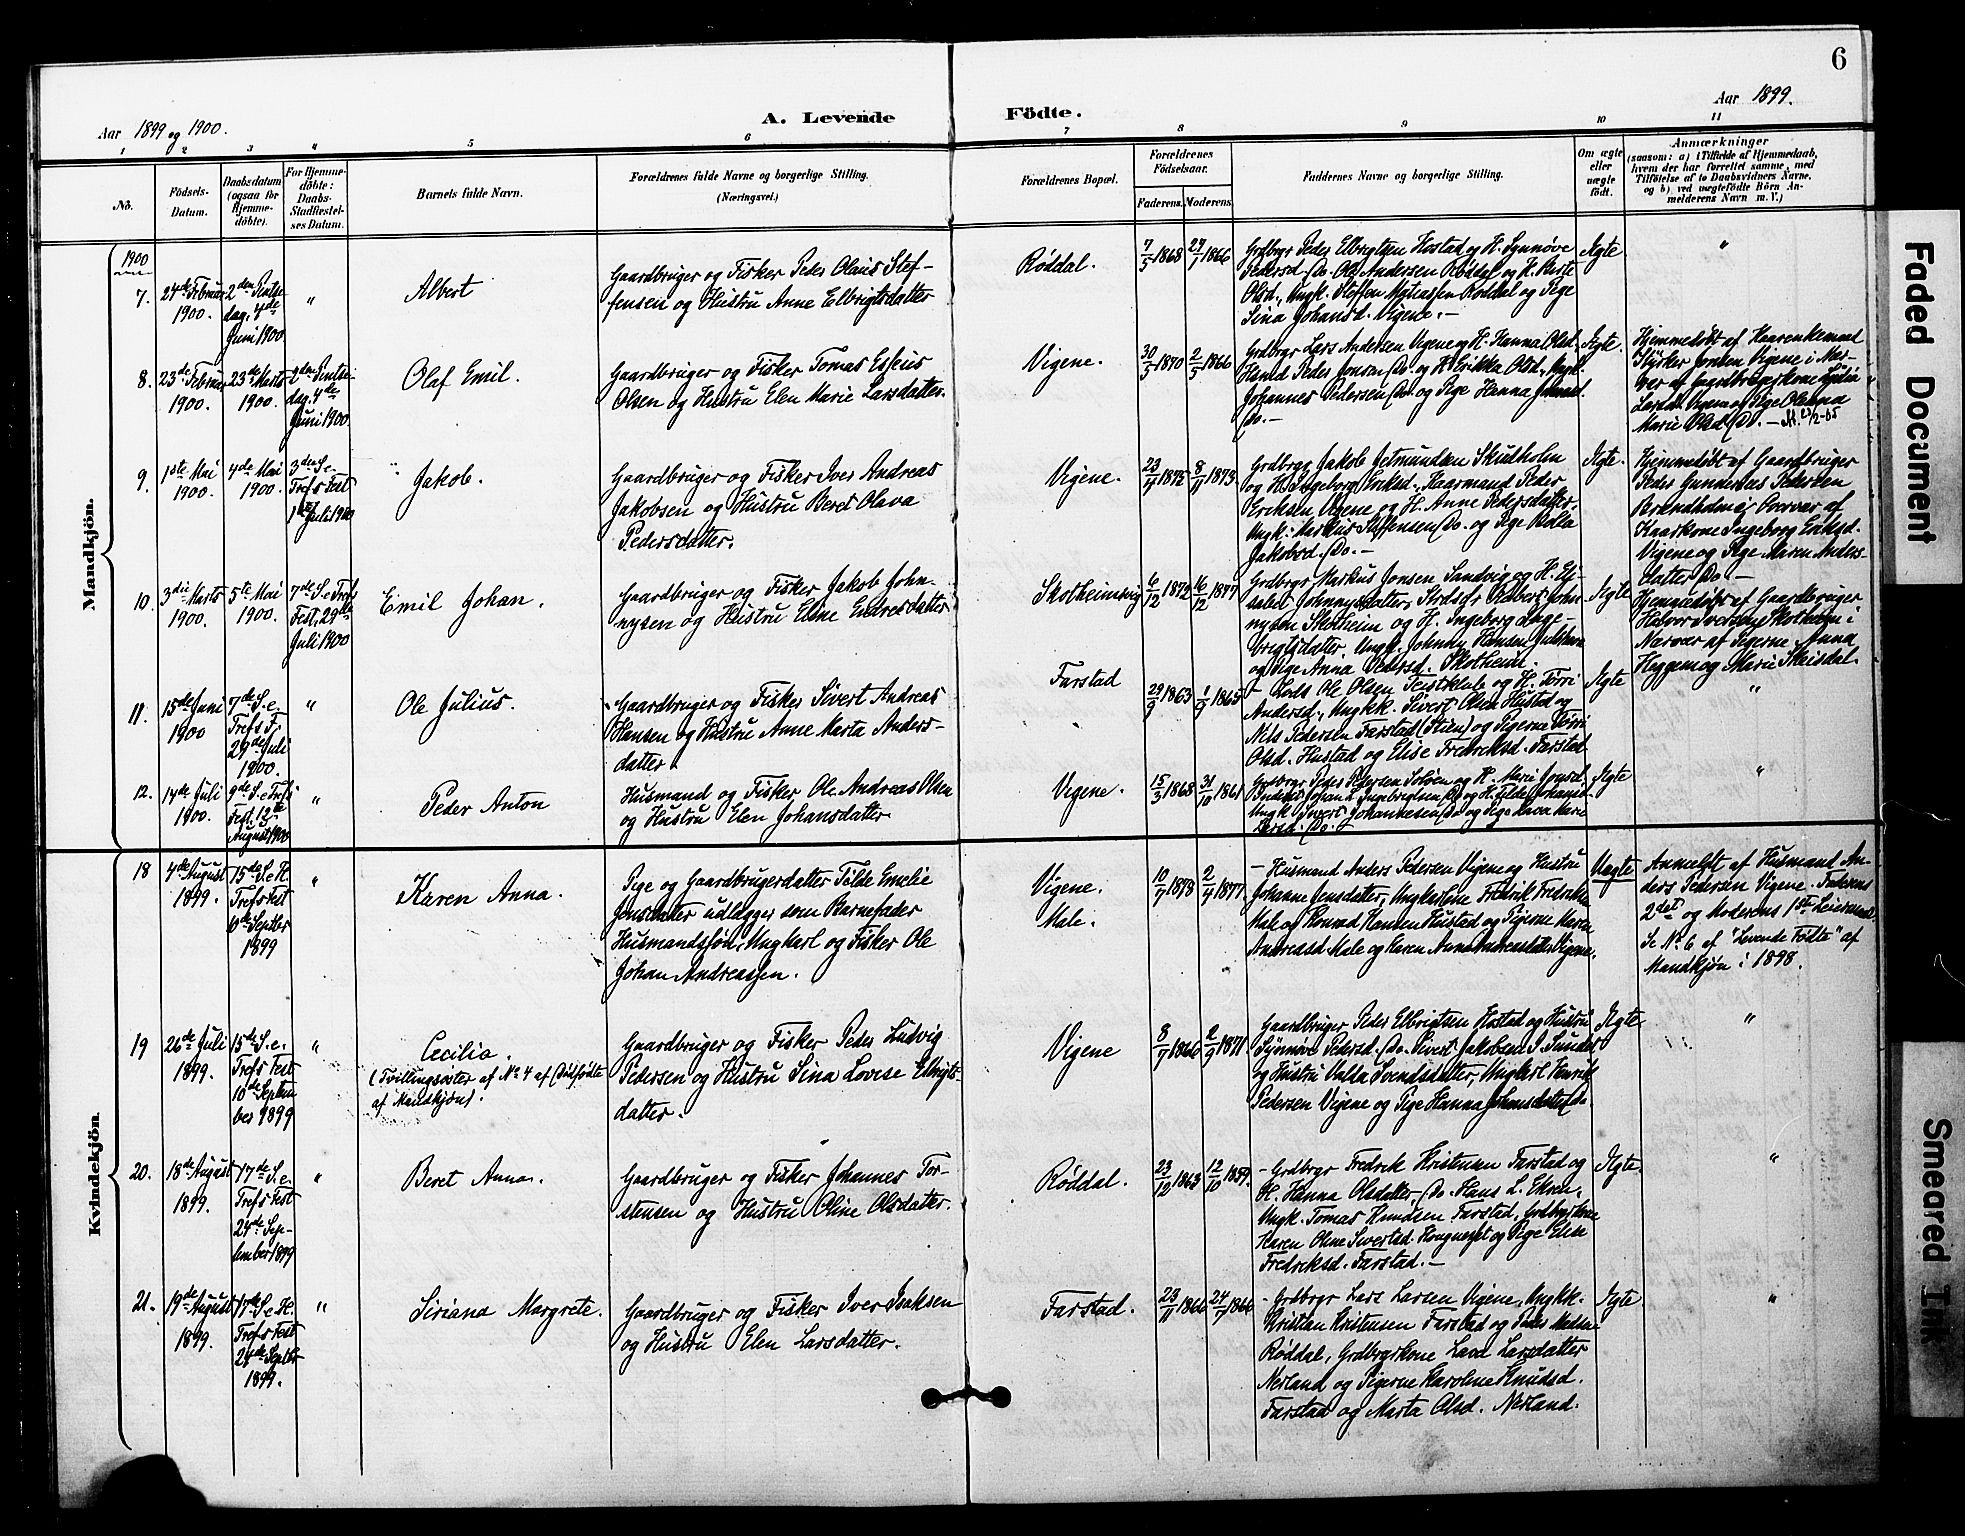 6
Aar 1899 og 1900.
A. Levende
Födte.
Aar 1899.
1 2 3 4 5 6 7 8 9 10 11
No.
Födsels-
Datum.
Daabsdatum
(ogsaa for
Hjemme-
döbte).
For Hjemme-
döbte:
Daabs-
Stadfæstel-
ses Datum.
Barnets fulde Navn.
Forældrenes fulde Navne og borgerlige Stilling.
(Næringsvei.)
Forældrenes Bopæl.
Forældrenes
Födselsaar.
Faderens.
Moderens.
Faddernes Navne og borgerlige Stilling.
Om ægte
eller
uægte
födt.
Anmærkninger
(saasom: a) i Tilfælde af Hjemmedaab,
hvem der har forrettet samme, med
Tilföielse af to Daabsvidners Navne,
og b) ved uægtefödte Börn An-
melderens Navn m. V.)
Mandkjön.
1900
7.
24de Februar
1900.
2den Pintse
dag, 4de
Juni 1900
"
Albert
Gaardbruger og Fisker Peder Olaus Stef-
fensen og Hustru Anne Elbrigtsdatter
Røddal.
7/5 1868
27/7 1866
Grdbrgr Peder Elbrigtsen Hostad og H. Synnøve
Pedersd. Do. Ole Andersen Røddal og H. Berte
Olsd., Ungk. Steffen Røddal og Pige
Sina Johansd. Vigene.-
Ægte
"
8.
23de Februar
1900.
23de Marts
1900.
2den Pintse
dag, 4de
Juni 1900
Olaf Emil.
Gaardbruger og Fisker Tomas Espeus
Olsen og Hustru Elen Marie Larsdatter.
Vigene.
30/5 1870
2/5 1866
Grdbrgr Lars Andersen Vigene og H. Hanna Olsd.
Husmd Peder Jonsen Do. og H. Erikka Olsd., Ungk.
Johannes Pedersen Do. og Pige Hanna Johansd.
Do.-
Ægte.
Hjemmedøbt af
Jonsen Vigene i Nær-
vær af Gaardbrugerkone
Larsd. Vigene og Pige Oleanna
Marie Olsd. Do.-
9.
1ste Mai
1900.
4de Mai
1900.
3die S. e.
Tref's Fest
1ste Juli 1900
Jakob.
Gaardbruger og Fisker Iver Andreas
Jakobsen og Hustru Beret Olava
Pedersdatter.
Vigene.
23/4 1872
8/11 1873
Grdbrgr Jakob Jetmundsen Skudholm
og H. Ingeborg Eriksd., Kaarmand Peder
Eriksen Vigene og H. Anne Pedersdatter.
Ungk. Markus Steffensen Do. og Pige
Jakobsd. Do.-
Ægte.
Hjemmedøbt af Gaardbruger
Peder Gunnerius Pedersen
i Overvær af
Kaarkone Ingeborg Eriksd.
Vigene og Pige Maren Anders-
datter Do.-
10.
3die Marts
1900.
5te Mai
1900.
7de S. e. Tref's
Fest, 29de
Juli 1900
Emil Johan.
Gaardbruger og Fisker Jakob John-
nysen og Hustru Eline Endresdatter
Skotheimsvig
6/12 1872
16/12 1877
Grdbrgr Markus Jonsen Sandvig og H. Eli-
sabet Johnnysdatter, Sivert John-
nysen Skotheim og H. Ingeborg Inge-
brigtsdatter. Ungk. Johnny Hansen
og Pige Anna Pedersd. Skotheim.
Ægte
Hjemmedøbt af Gaardbruger
Halvor Iversen Skotheim i
Nærvær af Pigerne Anna
Heggem og Marie Skeisdal.
11.
15de Juni
1900
7de S. e.
Tref's F.
29de Juli
1900.
"
Ole Julius.
Gaardbruger og Fisker Sivert Andreas
Hansen og Hustru Anne Marta Anders-
datter.
Farstad
29/9 1863
1/9 1865
- Lods Ole Olsen Teistklub og H. Torri
Andersd., Ungkk. Sivert Olsen Hustad og
Nils Pedersen Farstad (Stien) og Pigerne Torri
Olsd. Hustad og Elise Fredriksd. Farstad
Ægte
"
12.
14de Juli
1900.
9de S. e. Tref's
Fest, 12te
August 1900
"
Peder Anton
Husmand og Fisker Ole Andreas Olsen
og Hustru Elen Johansdatter.
Vigene.
15/3 1868
31/10 1861
Grdbrgr Peder Pedersen og H. Marie Jonsd.
Johan L. Ingebrigtsen Do. og H. Gjertine Johansd.
Ungk. Sivert Johannesen Do. og Pige Lava
Larsd. Do.-
Ægte
"
Kvindekjön.
18
4de August
1899.
15de S. e. H.
Tref's Fest
10de Septbr
1899
"
Karen Anna.
Pige og Gaardbrugerdatter Tilde Emelie
Jonsdatter udlægger som Barnefader
Husmandssøn, Ungkarl og Fisker Ole
Johan Andreassen.
Vigene.
Male.
10/7 1878
2/4 1877
- Husmand Anders Pedersen Vigene og Hustru
Johanne Jensdatter, Ungkarlene Fredrik Fredriksen
Male og Konrad Hansen Hustad og Pigerne Karen
Andreasd. Male og Karen Anna Andreasdatter Vigene.
Uægte
Anmeldt af Husmand An-
ders Pedersen Vigene. Faderens
2det og Moderens 1ste Leiermaal.
Se No. 6 af "Levende Fødte" af
Mandkjøn i 1898.
19
26de Juli
1899.
15de S. e.
Tref's Fest
10de Septem
ber 1899
"
Cecilia.
(Tvillingsøster af No. 4 af Dødfødte
af Mandkjøn).
Gaardbruger og Fisker Peder Ludvig
Pedersen og Hustru Sina Lovise Elbrigts-
datter.
Vigene
8/7 1866
2/9 1871.
Gaardbruger Peder Elbrigtsen Hostad og Hustru
Synnøve Pedersd. Do. Sivert Jakobsen S. Sundet
og Hustru Valda Svendsdatter, Ungkarl Henrik
Pedersen Vigene og Pige Hanna Johansdatter Do.
Ægte.
"
20.
18de August
1899.
17de S. e.
Tref's Fest
24de Sep-
tember 1899
"
Beret Anna.
Gaardbruger og Fisker Johannes Tor-
stensen og Hustru Oline Olsdatter.
Røddal.
23/12 1863
12/10 1859.
- Grdbrgr Fredrik Kristensen Farstad og
H. Hanna Olsdatter, Do. Hans L. Ekren,
Ungk. Tomas Knudsen Farstad, Grdbrgrkone
Karen Oline Sivertsd. og Pige Elise
Fredriksd. Farstad.-
Ægte.
"
21.
19de August
1899.
17de S. e. H.
Tref's Fest
24de Septbr
1899.
"
Siriana Margrete.
Gaardbruger og Fisker Iver Isaksen
og Hustru Elen Larsdatter.
Farstad.
23/11 1866
24/7 1866
- Grdbrgr Lars Larsen Vigene, Ungkk.
Kristian Kristensen Farstad og Peder Nelsen
Røddal, Grdbrgrkone Lava Larsdatter
Nerland og Pigerne Karoline Knudsd.
Farstad og Marta Olsd. Nerland.
Ægte.
"
Faded Document
Smeared Ink